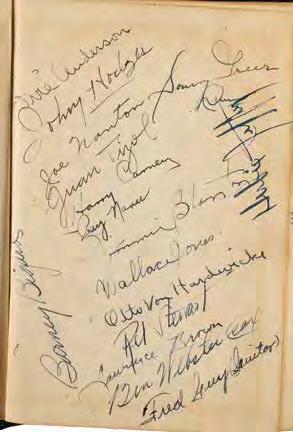 Ivie Anderson
Johnny Hodges
Sonny Greer
Joe Nanton
Juan Tizol
Harry Carney
Ray Nance
Jimmie Blanton
Wallace Jones
Otto Von Hardwicke
Rex Stewart
Lawrence Brown
Ben Webster (sax)
Fred Guy (Guitar)
Barney Bigard